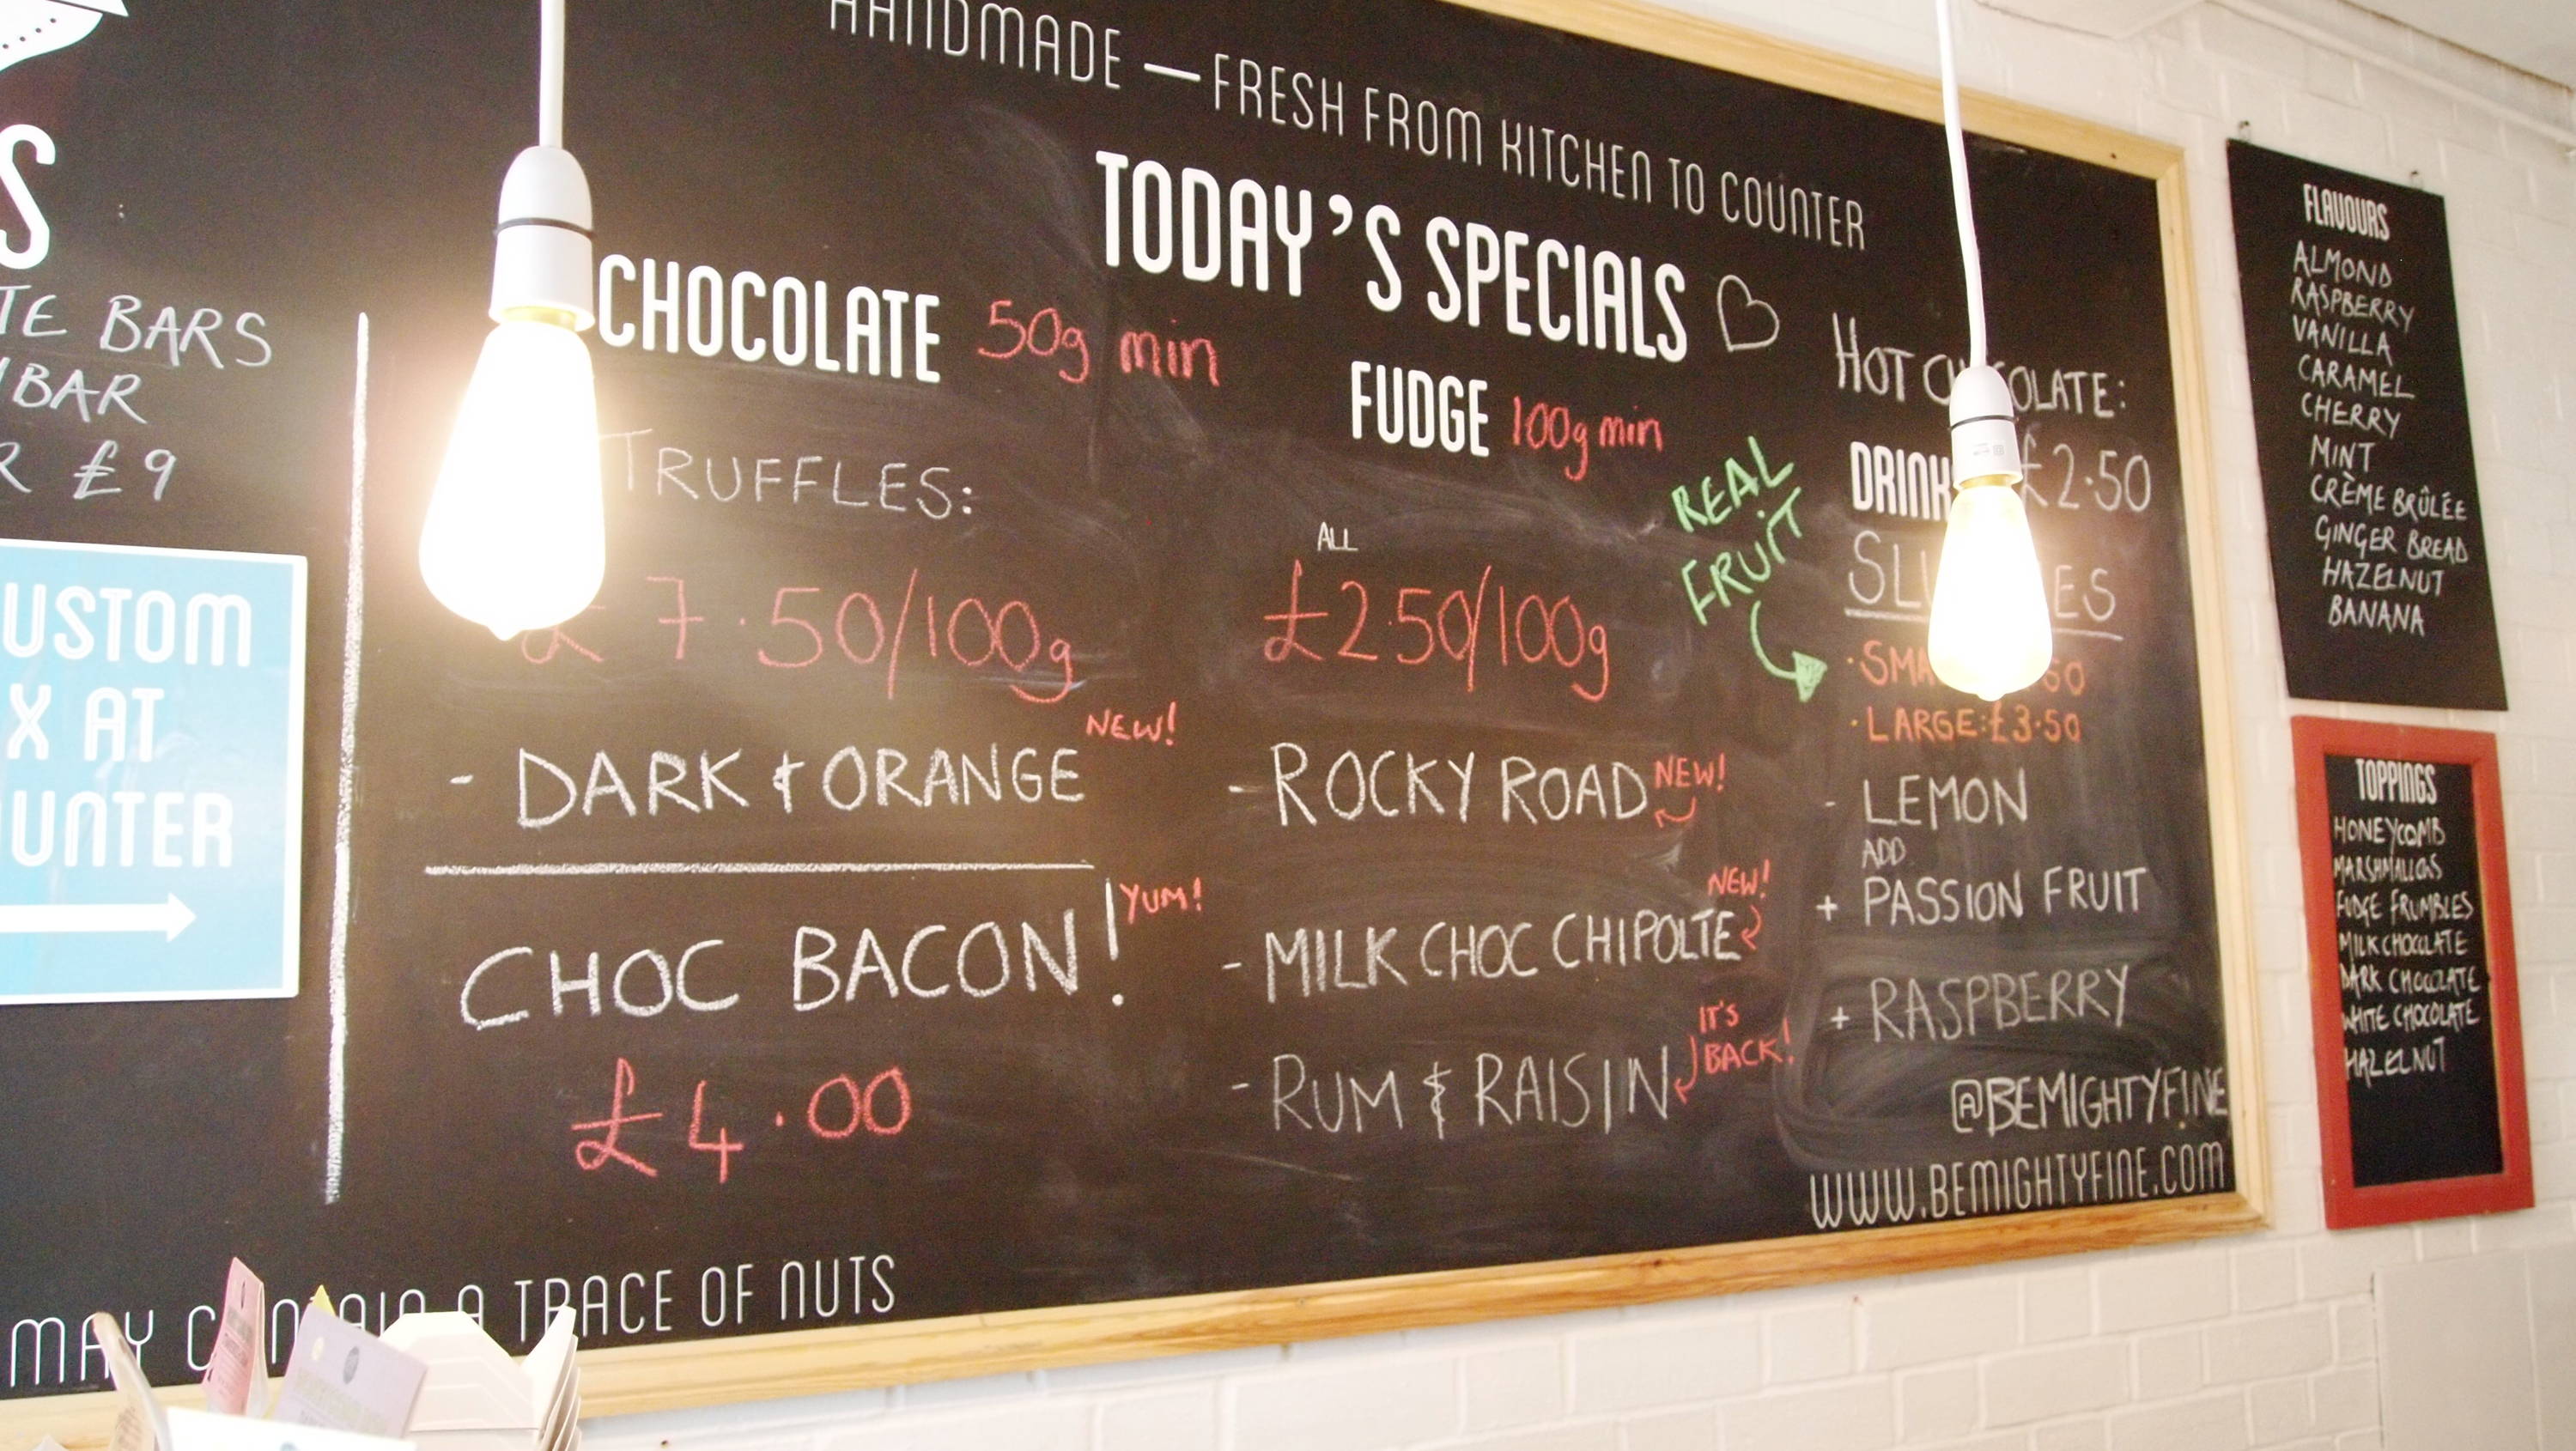 HANDMADE — FRESH FROM KITCHEN TO COUNTER
TODAY'S SPECIALS
BARS
£9
AT
CHOCOLATE 50g min
TRUFFLES:
£7.50/100g
- DARK & ORANGE NEW!
CHOC BACON! YUM!
£4.00
FUDGE 100g min
ALL
£2.50/100g
- ROCKY ROAD NEW!
- MILK CHOC CHIPOLTE NEW!
- RUM & RAISIN IT'S BACK!
HOT CHOCOLATE:
£2.50
REAL
FRUIT
· LARGE: £3.50
- LEMON
ADD
+ PASSION FRUIT
+ RASPBERRY
@BEMIGHTYFINE
WWW.BEMIGHTYFINE.COM
MAY CONTAIN A TRACE OF NUTS
FLAVOURS
ALMOND
RASPBERRY
VANILLA
CARAMEL
CHERRY
MINT
CRÈME BRÛLÉE
GINGER BREAD
HAZELNUT
BANANA
TOPPINGS
HONEYCOMB
MARSHMALLOWS
FUDGE FRUMBLES
MILK CHOCOLATE
DARK CHOCOLATE
WHITE CHOCOLATE
HAZELNUT